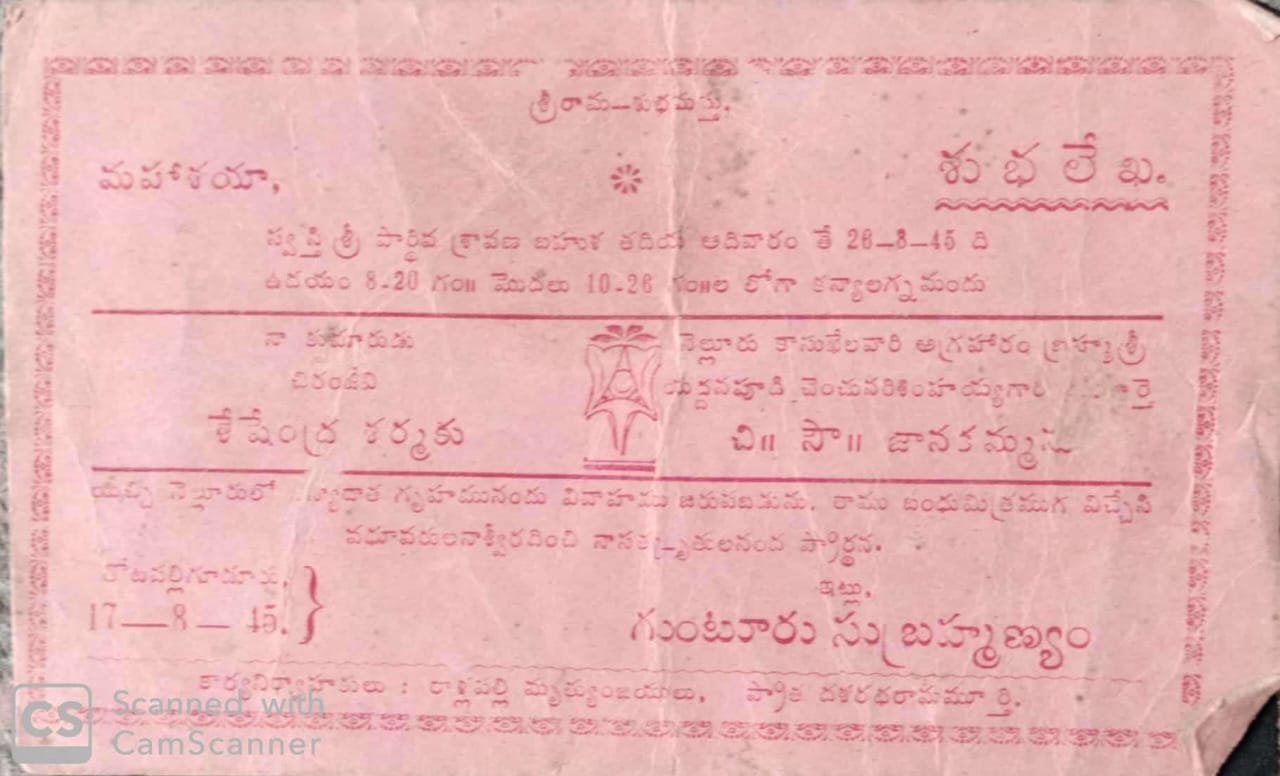 శ్రీరామ—శుభమస్తు.
మహాశయా,
శుభలేఖ.
స్వస్తి శ్రీ పార్థివ శ్రావణ బహుళ తదియ ఆదివారం తే 26—8—45 ది
ఉదయం 8-20 గం॥ మొదలు 10-26 గం॥ల లోగా కన్యాలగ్నమందు
నా కుమారుడు
చిరంజీవి
శేషేంద్ర శర్మకు
నెల్లూరు కానుఖేలవారి అగ్రహారం బ్రహ్మశ్రీ
యద్దనపూడి చెంచునరిశింహయ్యగారి
చి॥ సౌ॥ జానకమ్మను
యిచ్చి నెల్లూరులో గృహమునందు వివాహము జరుపబడును. రాము బంధుమిత్రముగ విచ్చేసి
వధూవరులనాశ్వీరదించి ప్రార్థన.
17—8—45.
ఇట్లు,
గుంటూరు సుబ్రహ్మణ్యం
కార్యనిర్వాహకులు : రాళ్లపల్లి మృత్యుంజయులు, దశరథరామమూర్తి.
CS Scanned with
CamScanner